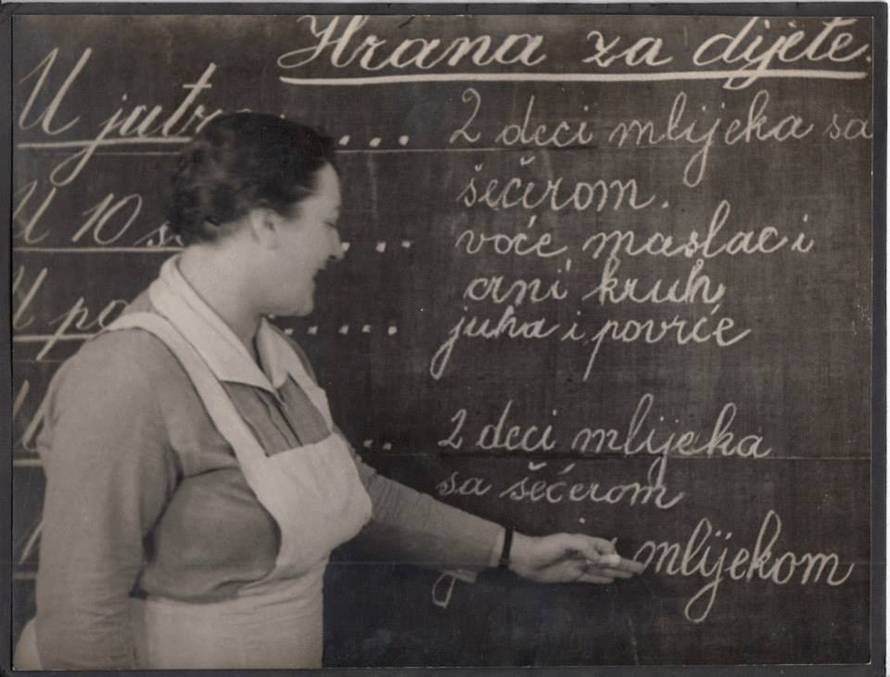 Hrana za dijete.
U jutro .... 2 deci mlijeka sa
šećirom.
U 10 s... voće maslac i
crni kruh
U po..... juha i povrće
U .. 2 deci mlijeka
sa šećerom
mlijekom